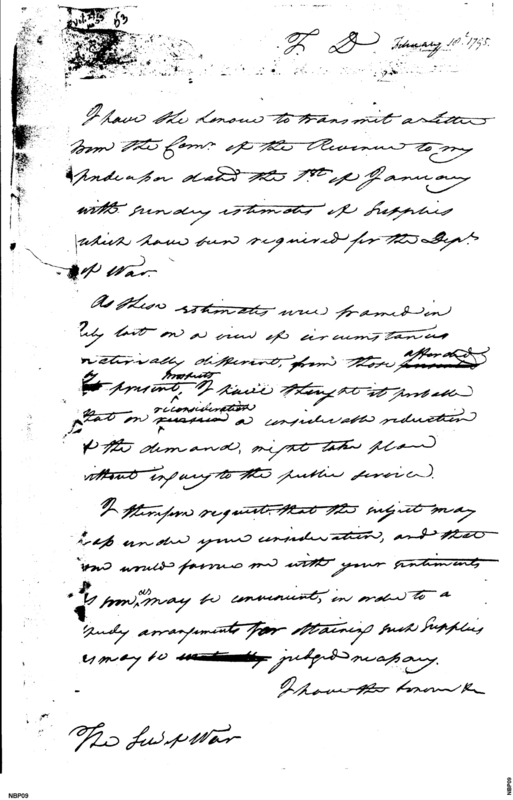 63
T. D. February 10th 1795.
I have the honour to transmit a Letter
from the Comr. of the Revenue to my
predecessor dated the 1st of January
with sundry estimates of Supplies
which have been required for the Dept.
of War.
As these estimates were framed in
July last on a view of circumstances
materially different, from those afforded
by present prospects, I have thought it probable
that on reconsideration a considerable reduction
of the demand, might take place
without injury to the public service.
I therefore request that the subject may
pass under your consideration, and that
you would favour me with your sentiments
as soon, as may be convenient, in order to a
speedy arrangement for obtaining such Supplies
as may be judged necessary.
I have the honour &c
The Sec. of War
NBP09
NBP09